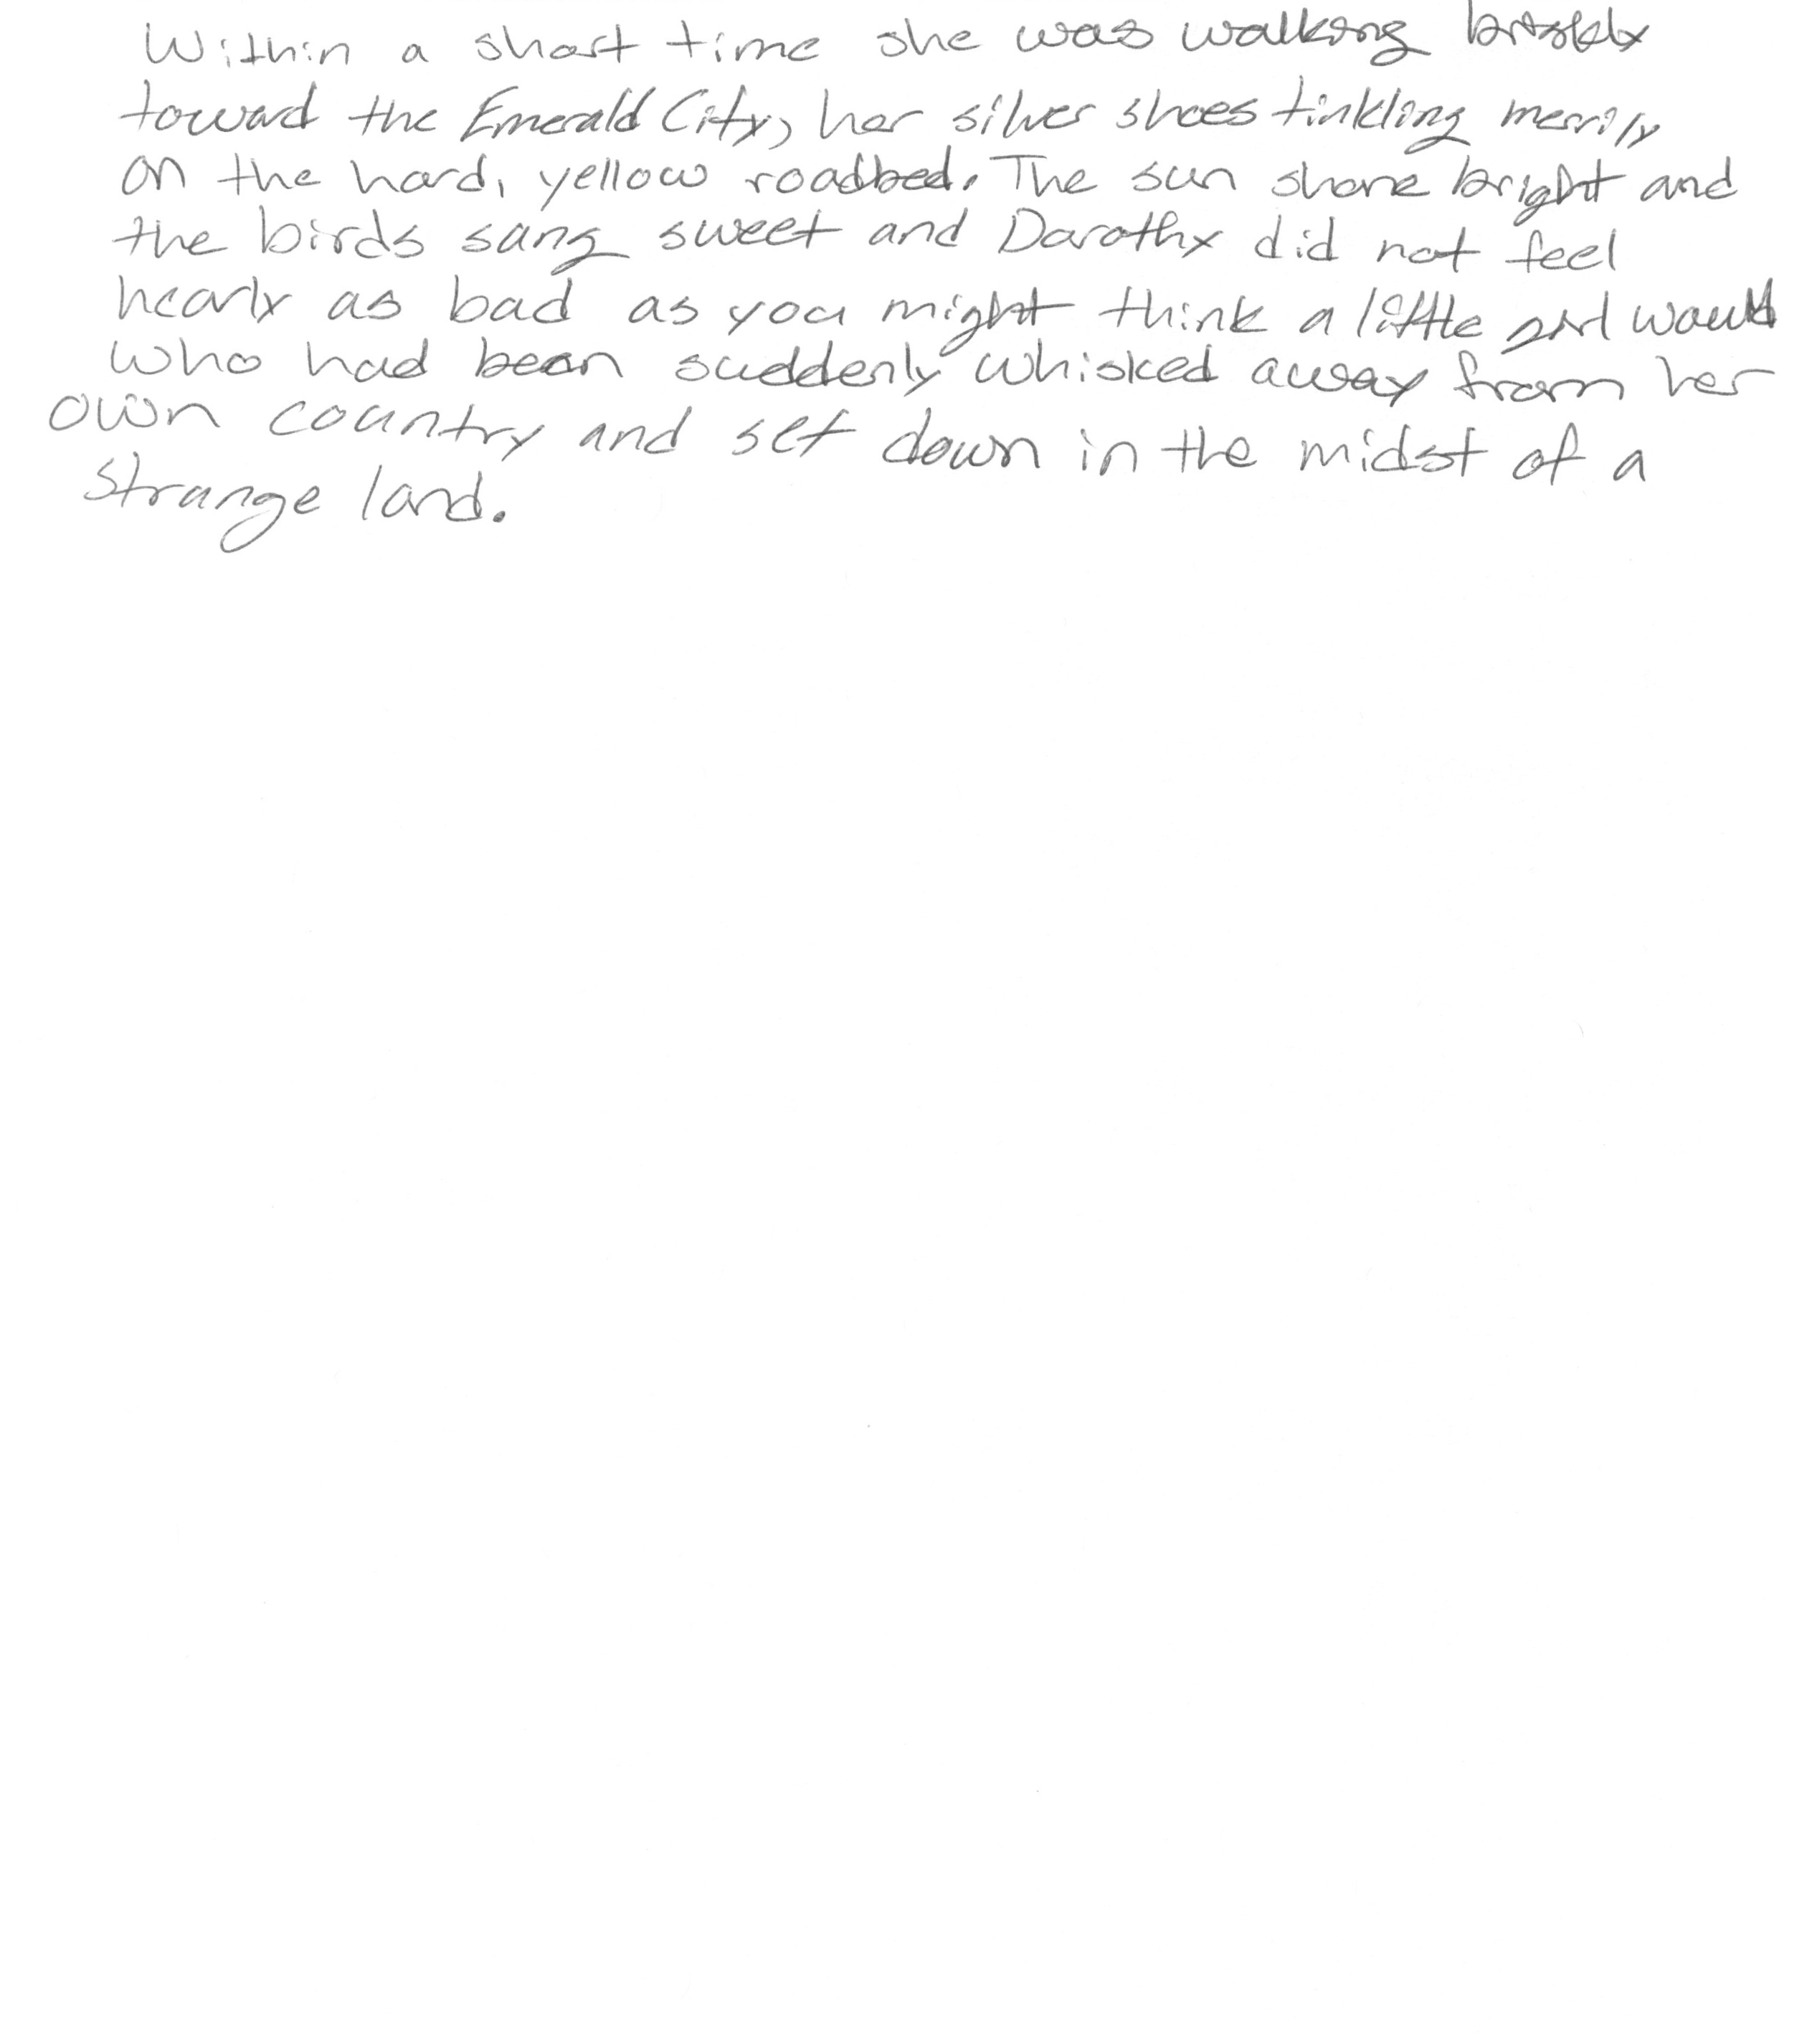 Within a short time she was walking briskly
toward the Emerald City, her silver shoes tinkling merrily
on the hard, yellow roadbed. The sun shone bright and
the birds sang sweet and Dorothy did not feel
nearly as bad as you might think a little girl would
who had been suddenly whisked away from her
own country and set down in the midst of a
strange land.